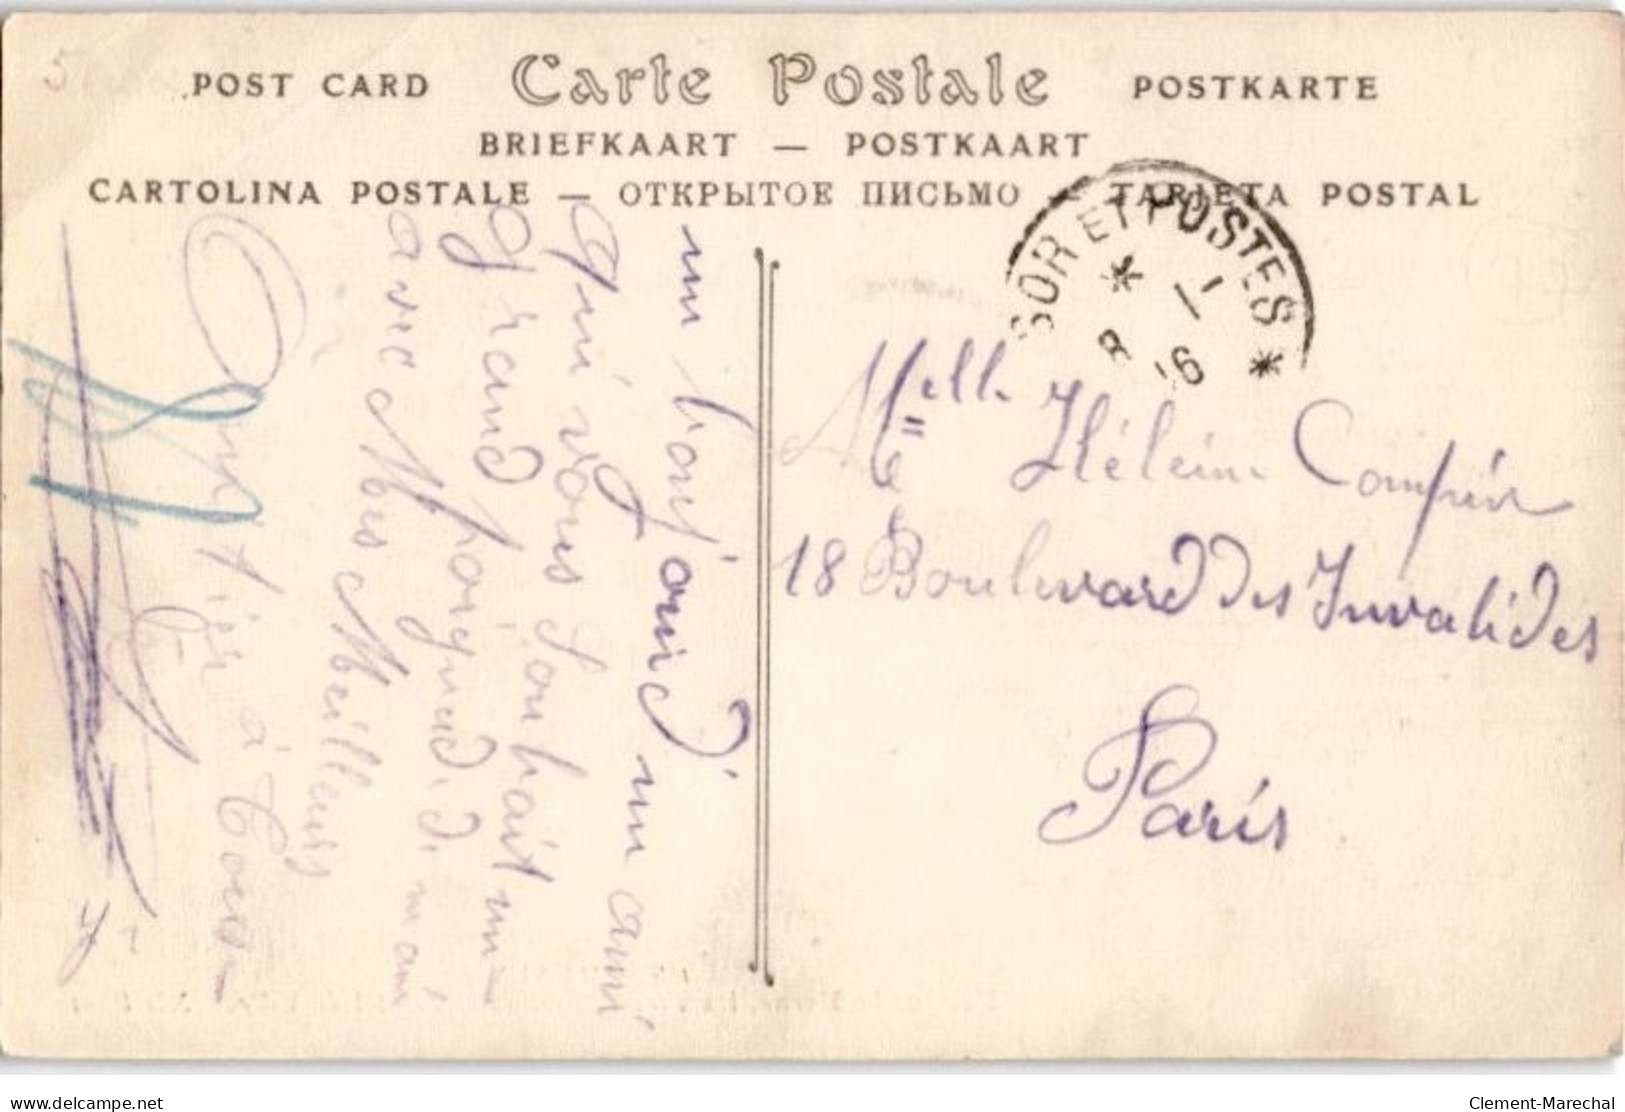 5
POST CARD Carte Postale POSTKARTE
BRIEFKAART — POSTKAART
CARTOLINA POSTALE — ОТКРЫТОЕ ПИСЬМО — TARJETA POSTAL
SOR ET POSTES
* 1-1
8 16 *
un bonj'ourd un ami
qui vous Souhait un
grand
avec Mes Meilleurs
à
Melle Héleine
18 Boulevard des Invalides
Paris
delcampe.net
Clement-Marechal